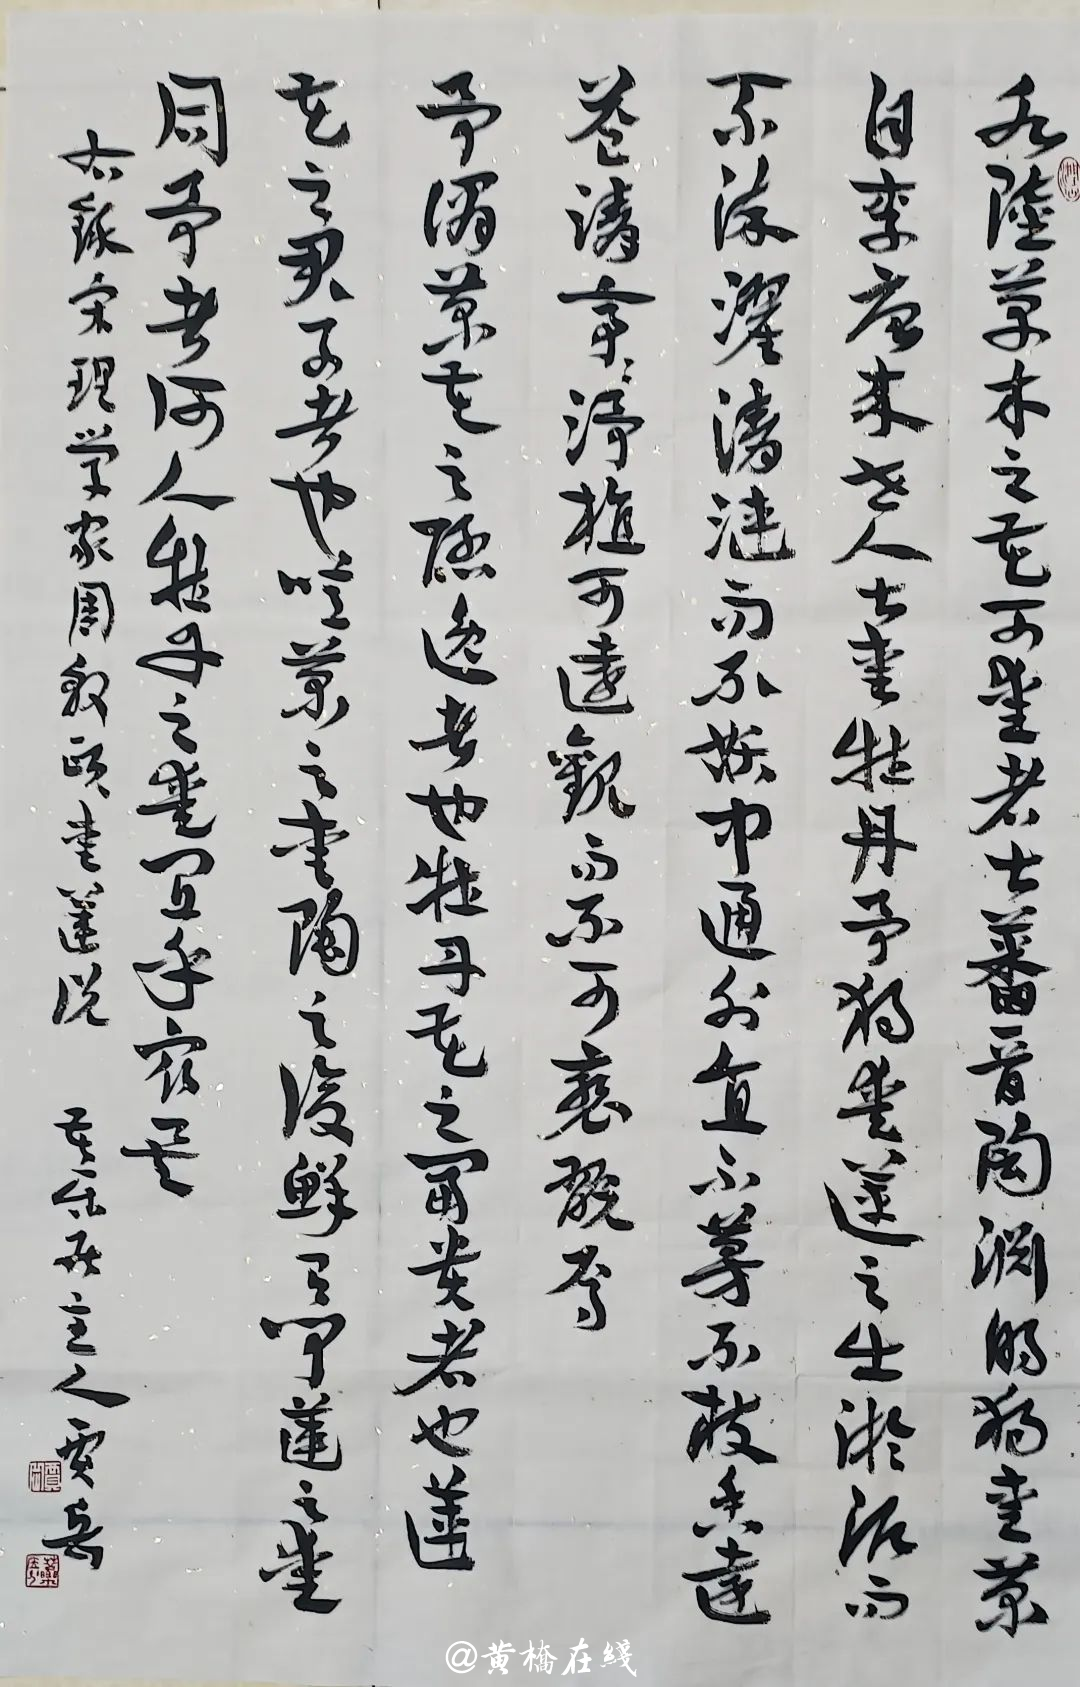 水陸草木之花可愛者甚蕃晉陶淵明獨愛菊
自李唐来世人甚愛牡丹予獨愛蓮之出淤泥而
不染濯清漣而不妖中通外直不蔓不枝香遠
益清亭〻淨植可遠觀而不可褻翫焉
予謂菊花之隱逸者也牡丹花之富貴者也蓮
花之君子者也噫菊之愛陶之後鮮有聞蓮之愛
同予者何人牡丹之愛宜乎众矣
右錄宋理学家周敦頤愛蓮说
其樂居主人賈岳
@黄橋在綫